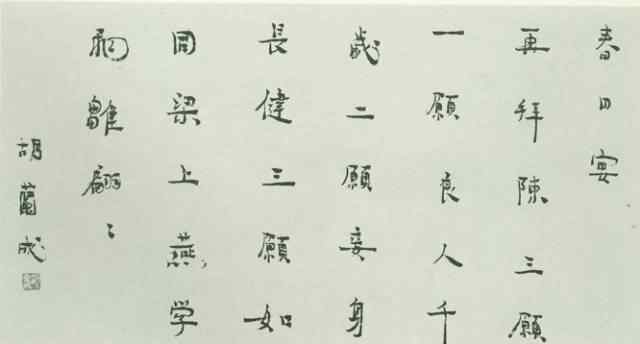 春日宴
再拜陳三願
一願良人千
歲二願妾身
長健三願如
同梁上燕学
雛翩〻
胡蘭成